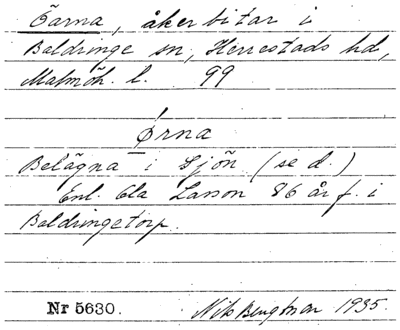 Örna, åkerbitar i
Baldringe sn, Herrestads hd,
Malmöh. l. 99
Ørna
Belägna i Sjön (se d.)
Enl. Ola Larsson 86 år f. i
Baldringetorp.
Nr 5630. Nils Bengtsson 1935.